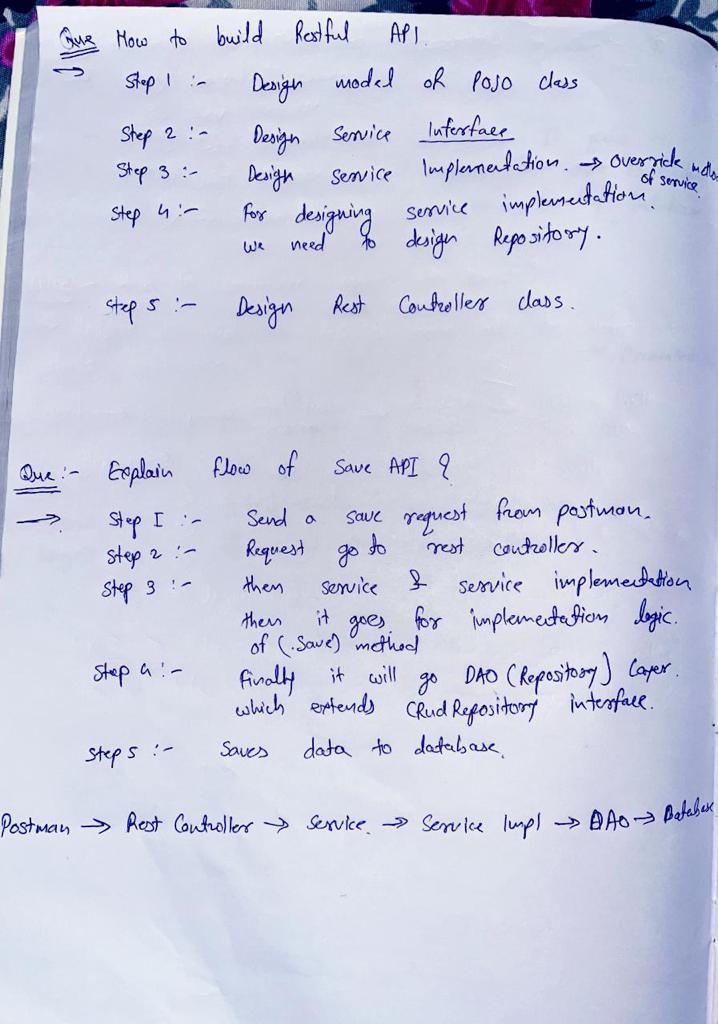 Que How to build Restful API.
→ Step 1 :- Design model or POJO class
Step 2 :- Design Service Interface
Step 3 :- Design service Implementation. → override
of service
Step 4 :- For designing service implementation.
we need to design Repository.
Step 5 :- Design Rest Controller class.
Que :- Explain flow of Save API ?
→ Step I :- Send a save request from postman.
Step 2 :- Request go to rest controller.
Step 3 :- then service & service implementation
then it goes for implementation logic.
of (.Save) method
Step 4 :- finally it will go DAO (Repository) layer.
which extends CRud Repository interface.
Step 5 :- Saves data to database.
Postman → Rest Controller → Service. → Service Impl → DAO → Database